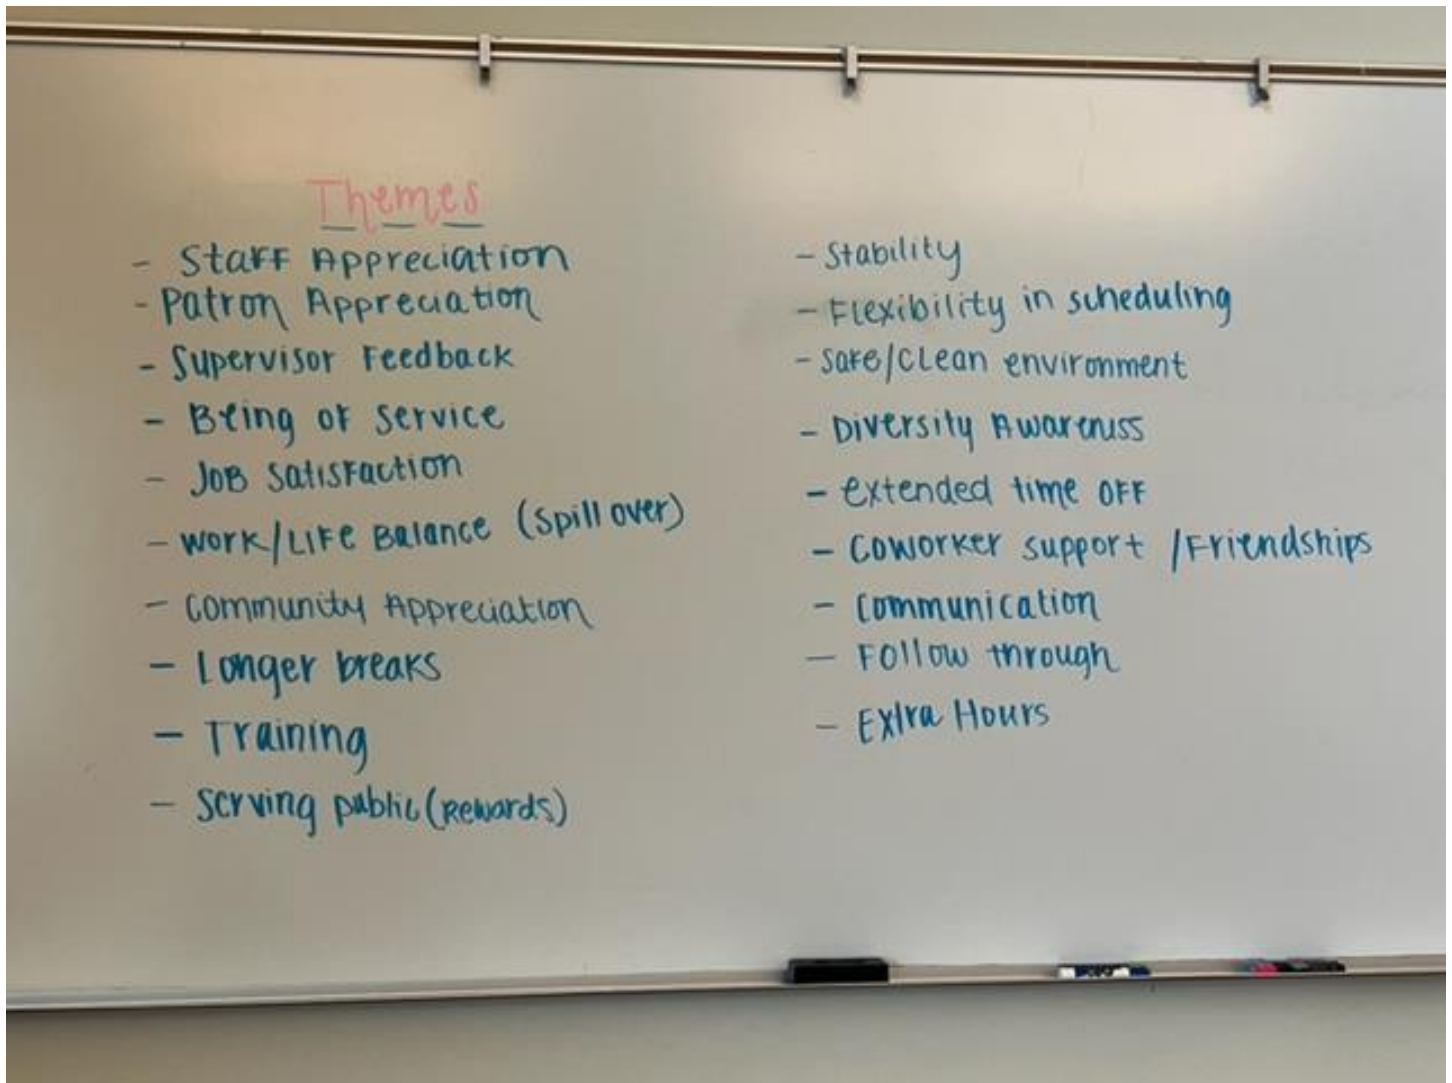 Themes
- Staff Appreciation
- Patron Appreciation
- Supervisor Feedback
- Being of service
- Job satisfaction
- Work/Life Balance (spill over)
- Community Appreciation
- Longer breaks
- Training
- Serving public (rewards)
- Stability
- Flexibility in scheduling
- Safe/Clean environment
- Diversity Awareness
- extended time off
- Coworker support /Friendships
- Communication
- Follow through
- Extra Hours